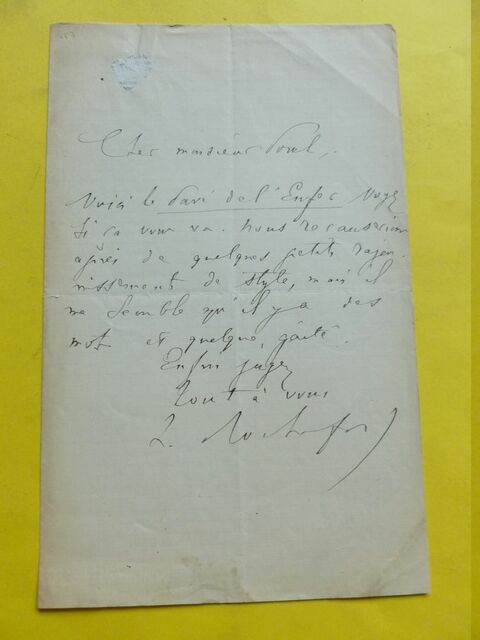 Cher monsieur Porel,
Voici le Pavé de l'Enfer Voyez
si ça vous va. Nous recauserions
après de quelques petits rajeu-
nissement de style, mais il
me semble qu'il y a des
mots et quelque gaîté.
Enfin jugez
Tout à vous
H. Rochefort